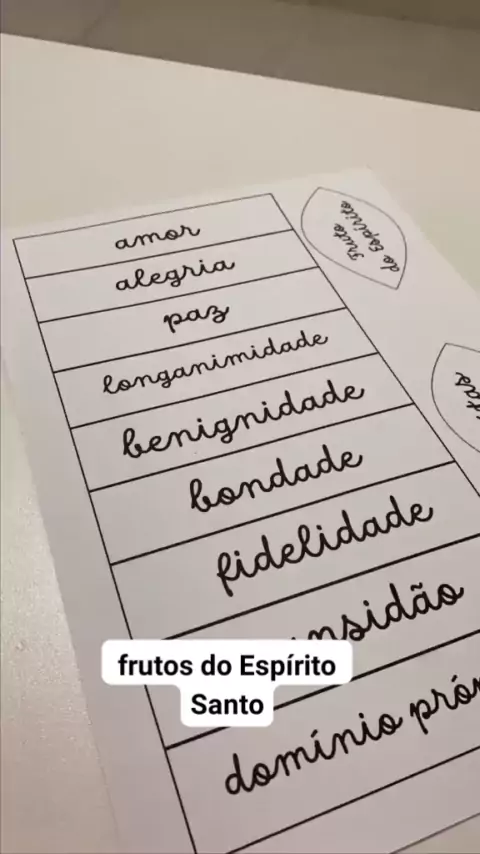 amor
alegria
paz
longanimidade
benignidade
bondade
fidelidade
domínio
Fruto
do Espírito
frutos do Espírito
Santo